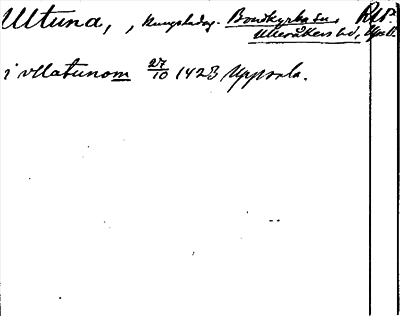 Ultuna, , kungsladug. Bondkyrko sn,
Ulleråkers hd, Upsl.
i vllatunom 27/10 1423 Uppsala.